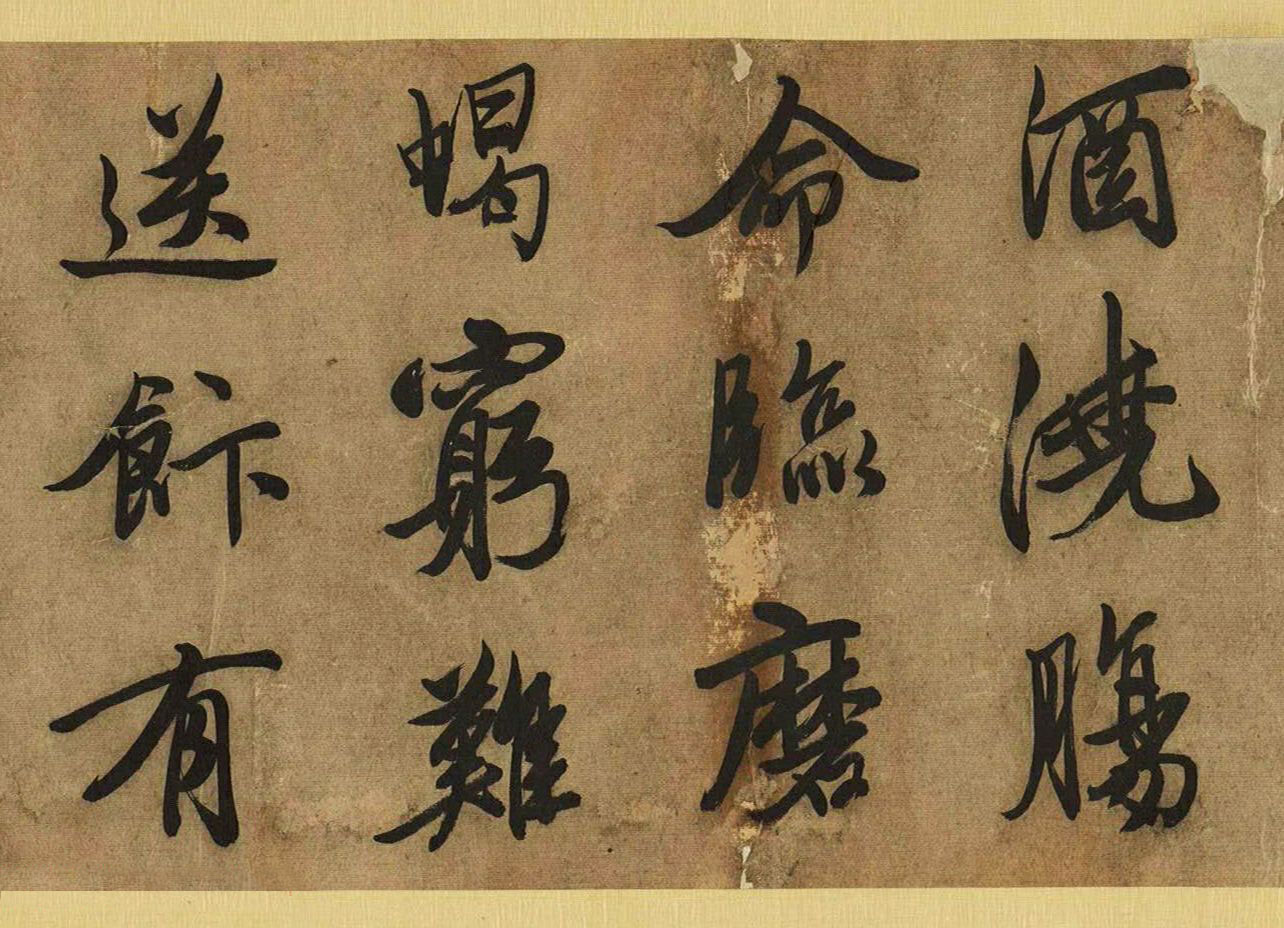 酒澆膓
命臨磨
蝎窮難
送飰有